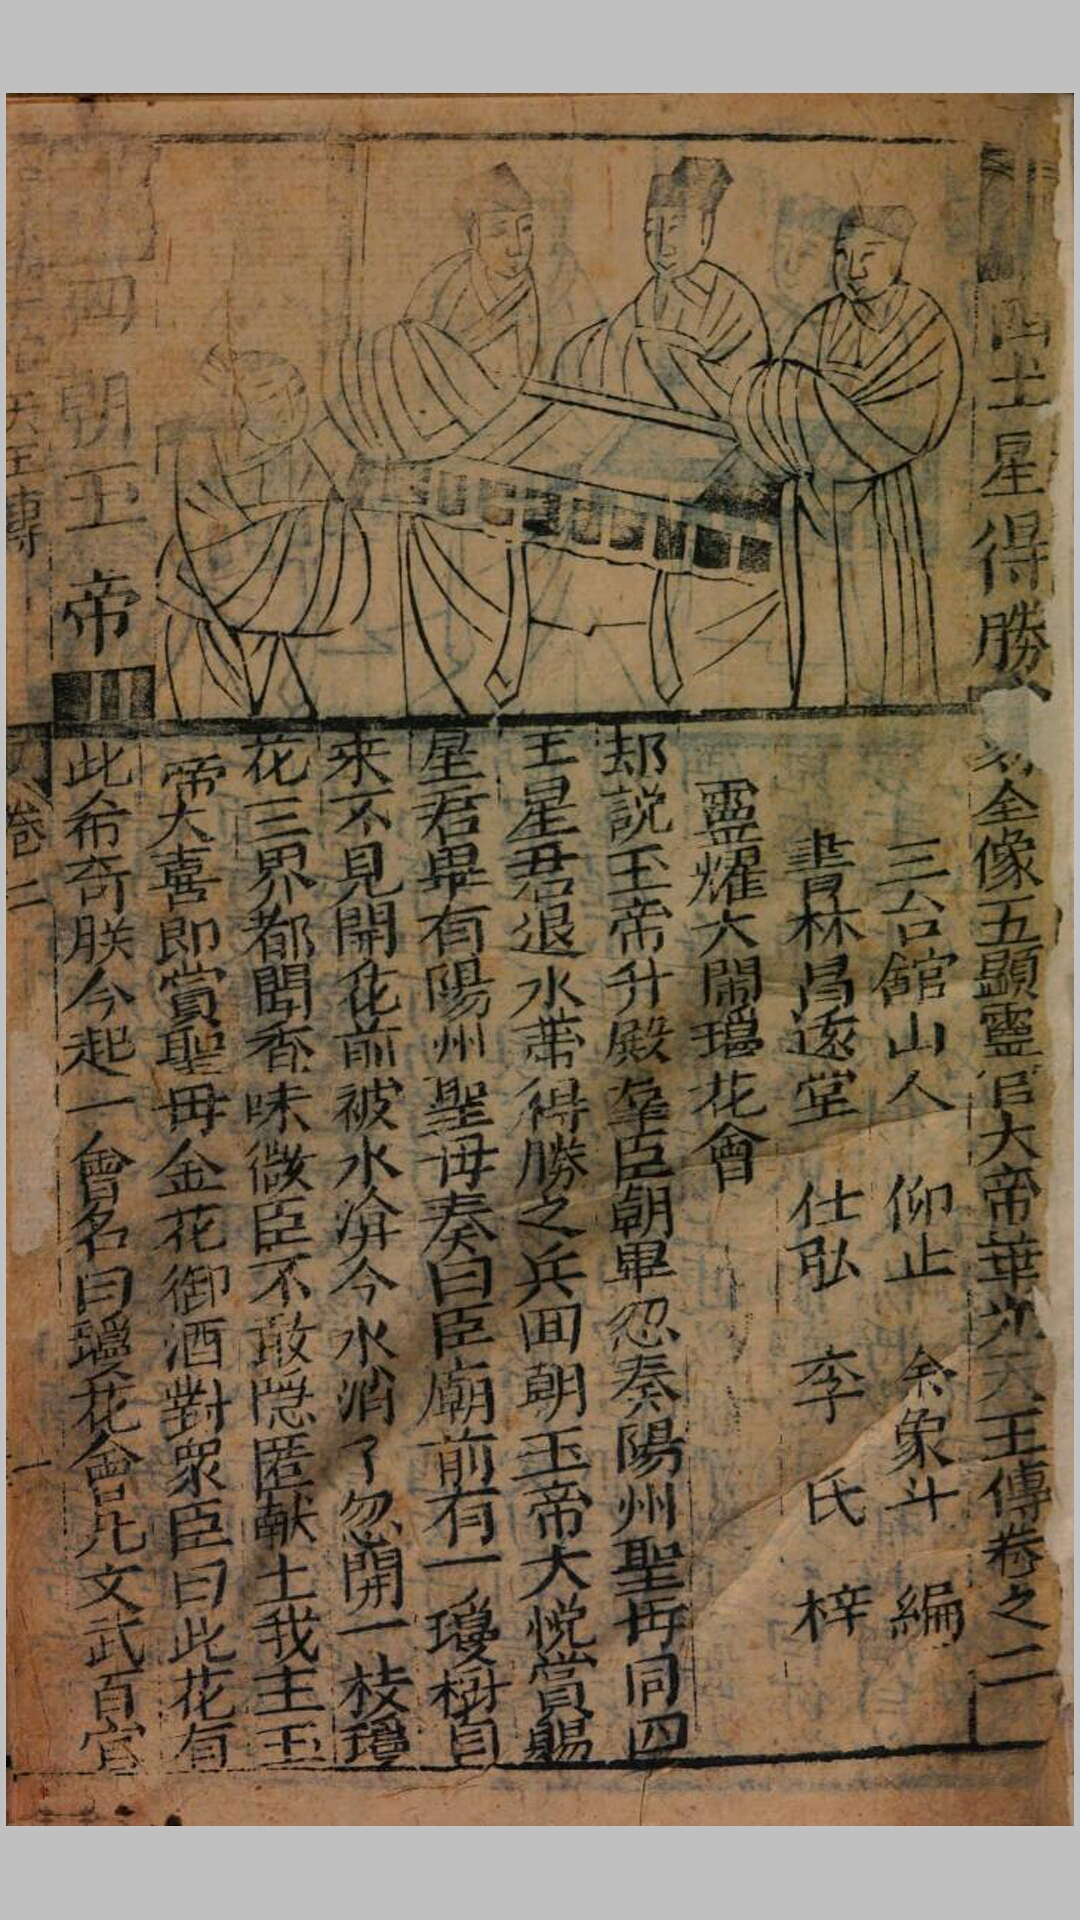 四土星得勝
回朝玉帝
刻全像五顯靈官大帝華光天王傳卷之二
三台館山人 仰止 余象斗 編
書林昌遠堂 仕弘 李氏 梓
靈耀大鬧瓊花會
却説玉帝升殿羣臣朝畢忽奏陽州聖母同四
王星君退水蕭得勝之兵回朝玉帝大悦賞賜
星君畢有陽州聖毋奏曰臣廟前有一瓊樹自
来不見開花前被水渰今水消了忽開一枝瓊
花三界都聞香味微臣不敢隠匿献土我主玉
帝大喜即賞聖毋金花御酒對衆臣曰此花有
此希奇朕今起一會名曰瓊花會凡文武百官
天王傳
卷二
一